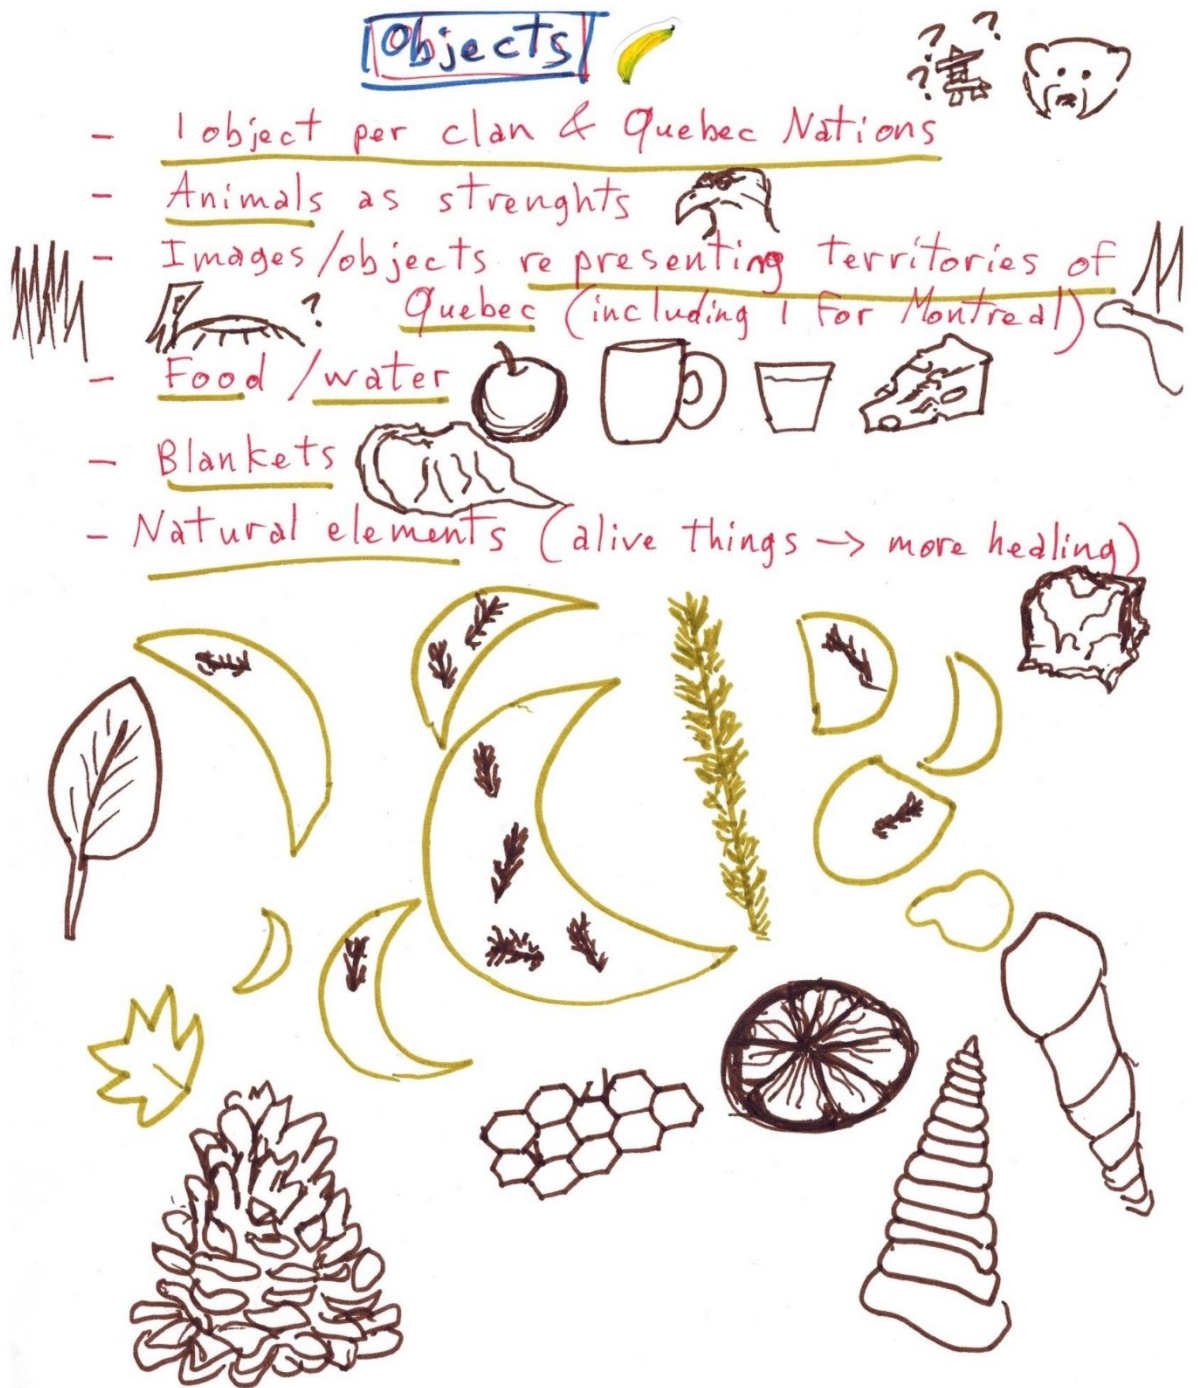 Objects
? ? ?
- 1 object per clan & Quebec Nations
- Animals as strenghts
- Images/objects representing territories of
? Quebec (including 1 for Montreal)
- Food/water
- Blankets
- Natural elements (alive things → more healing)